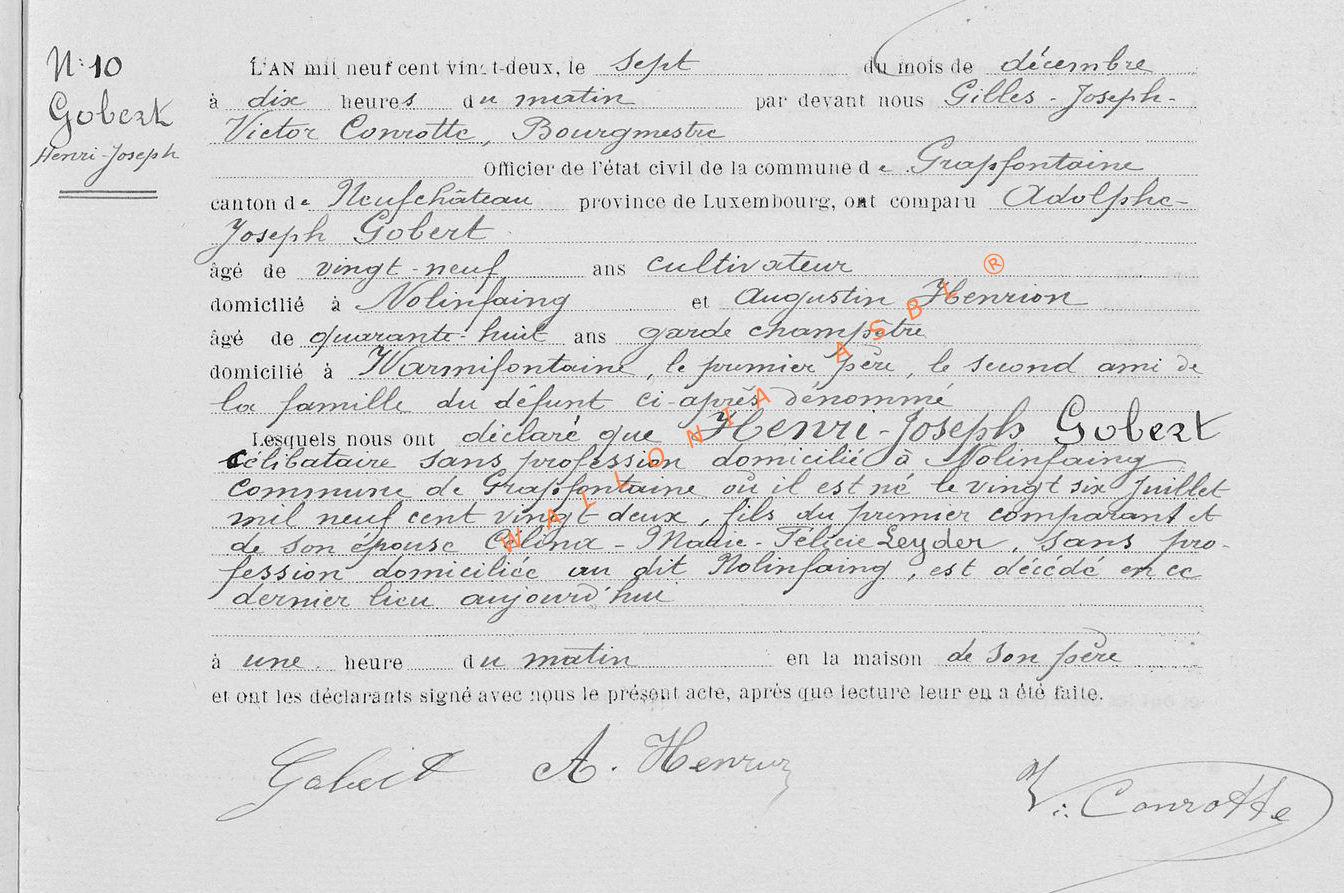 N: 10
Gobert
Henri-Joseph
L'AN mil neuf cent vingt-deux, le sept du mois de décembre
à dix heures du matin par devant nous Gilles-Joseph-
Victor Conrotte, Bourgmestre
Officier de l'état civil de la commune de Grapfontaine
canton de Neufchâteau province de Luxembourg, ont comparu Adolphe-
Joseph Gobert
âgé de vingt-neuf ans cultivateur
domicilié à Nolinfaing et Augustin Henrion
âgé de quarante-huit ans garde champêtre
domicilié à Warmifontaine, le premier père, le second ami de
la famille du défunt ci-après dénommé
Lesquels nous ont déclaré que Henri-Joseph Gobert
célibataire sans profession domicilié à Nolinfaing
commune de Grapfontaine où il est né le vingt six Juillet
mil neuf cent vingt deux, fils du premier comparant et
de son épouse Célina-Marie-Félicie Leyder, sans pro-
fession domiciliée au dit Nolinfaing, est décédé en ce
dernier lieu aujourd'hui
à une heure du matin en la maison de son père
et ont les déclarants signé avec nous le présent acte, après que lecture leur en a été faite.
Gobert A. Henrion V: Conrotte
WALLONIA ASBL ®